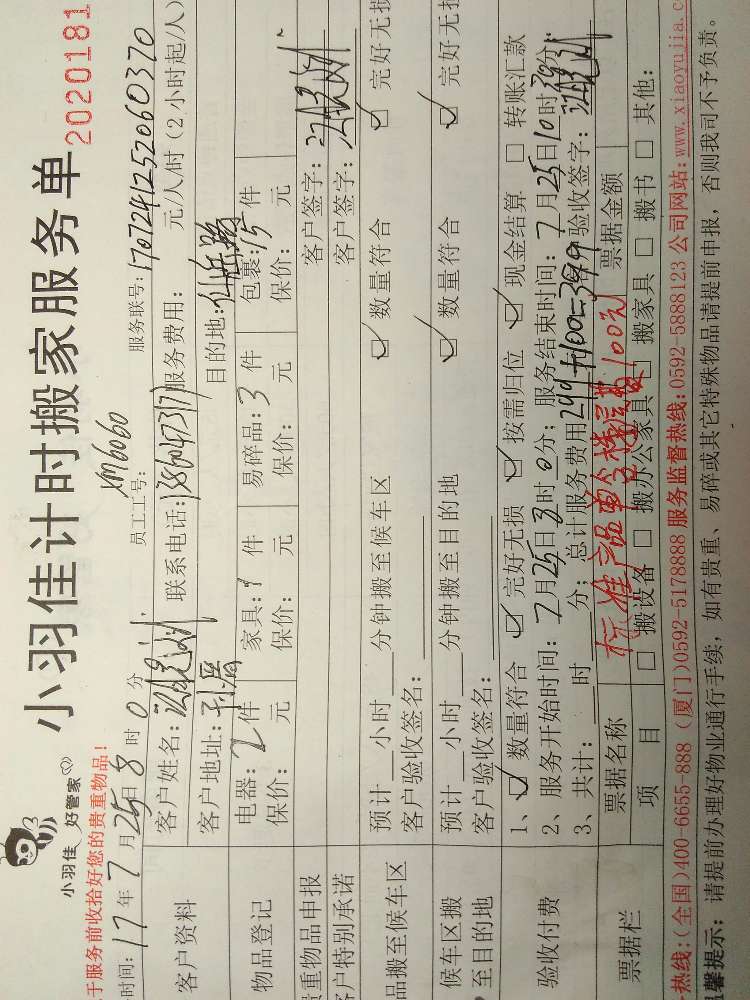 小羽佳 好管家
小羽佳计时搬家服务单
2020181
于服务前收拾好您的贵重物品！
时间：17年7月25日8时0分 员工工号：XM6060 服务联号：1707241252060320
客户资料
客户姓名： 联系电话： 服务费用： 元/人/时（2小时起/人）
客户地址： 目的地：
物品登记
电器：2件 家具：1件 易碎品：3件 包裹：15件
保价： 元 保价： 元 保价： 元 保价： 元
贵重物品申报 客户签字：
客户特别承诺 客户签字：
品搬至候车区
预计 小时 分钟搬至候车区 ☑ 数量符合 ☑ 完好无损
客户验收签名：
候车区搬至目的地
预计 小时 分钟搬至目的地 ☑ 数量符合 ☑ 完好无
客户验收签名：
验收付费
1、☑ 数量符合 ☑ 完好无损 ☑ 按需归位 ☑ 现金结算 □ 转账汇款
2、服务开始时间：7月25日8时0分；服务结束时间：7月25日10时30分；
3、共计： 时 分；总计服务费用299+100=399 验收签字：
票据栏
票据名称 标准产品 100元 票据金额
项目 □ 搬设备 □ 搬办公家具 □ 搬家具 □ 搬书 □ 其他：
热线：(全国)400-6655-888 (厦门)0592-5178888 服务监督热线：0592-5888123 公司网站：www.xiaoyujia.c
温馨提示：请提前办理好物业通行手续，如有贵重、易碎或其它特殊物品请提前申报，否则我司不予负责。